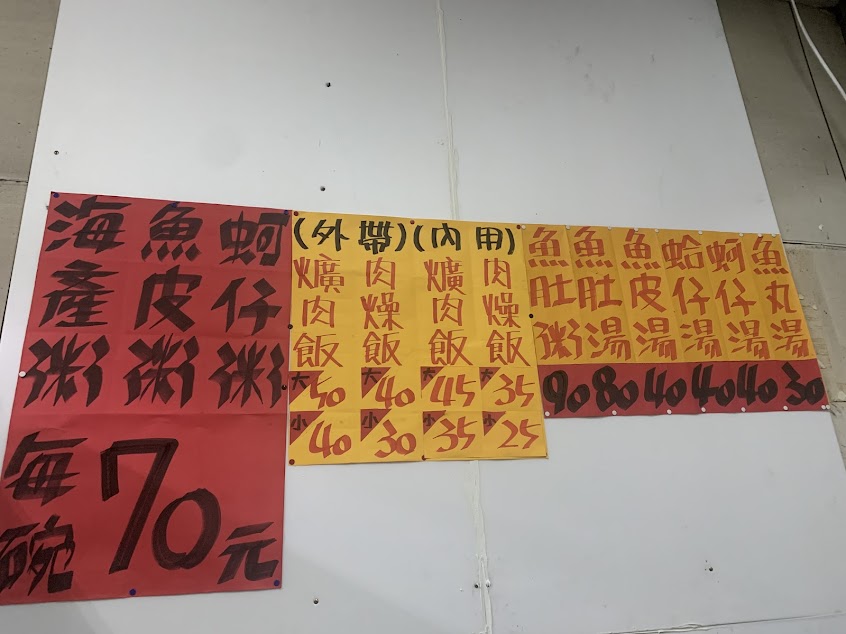 海產粥
魚皮粥
蚵仔粥
每碗70元
(外帶)
爌肉飯
大50
小40
肉燥飯
大40
小30
(內用)
爌肉飯
大45
小35
肉燥飯
大35
小25
魚肚粥
90
魚肚湯
80
魚皮湯
40
蛤仔湯
40
蚵仔湯
40
魚丸湯
30